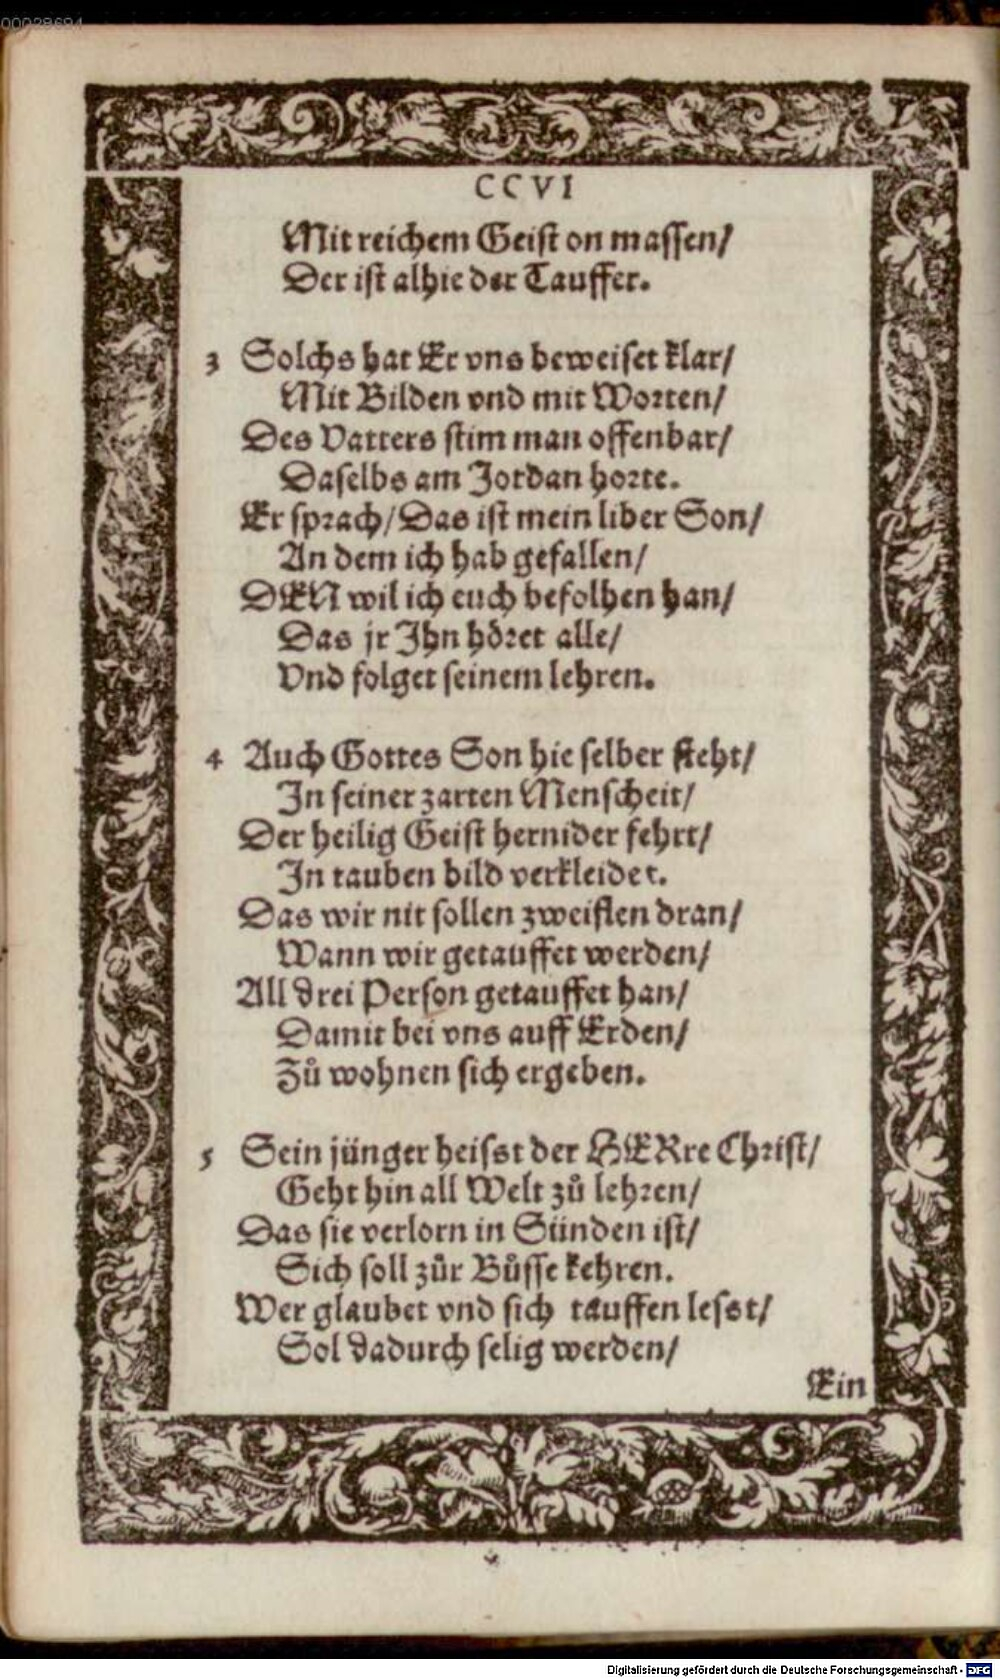 00028694
CCVI
Mit reichem Geist on massen/
Der ist alhie der Tauffer.
3 Solchs hat Er vns beweiset klar/
Mit Bilden vnd mit Worten/
Des Vatters stim man offenbar/
Daselbs am Jordan horte.
Er sprach/Das ist mein liber Son/
An dem ich hab gefallen/
DEN wil ich euch befolhen han/
Das jr Ihn höret alle/
Vnd folget seinem lehren.
4 Auch Gottes Son hie selber steht/
In seiner zarten Menscheit/
Der heilig Geist hernider fehrt/
In tauben bild verkleidet.
Das wir nit sollen zweiflen dran/
Wann wir getauffet werden/
All drei Person getauffet han/
Damit bei vns auff Erden/
Zů wohnen sich ergeben.
5 Sein jünger heisst der HERre Christ/
Geht hin all Welt zů lehren/
Das sie verlorn in Sünden ist/
Sich soll zůr Bůsse kehren.
Wer glaubet vnd sich tauffen lesst/
Sol dadurch selig werden/
Ein
Digitalisierung gefördert durch die Deutsche Forschungsgemeinschaft - DFG